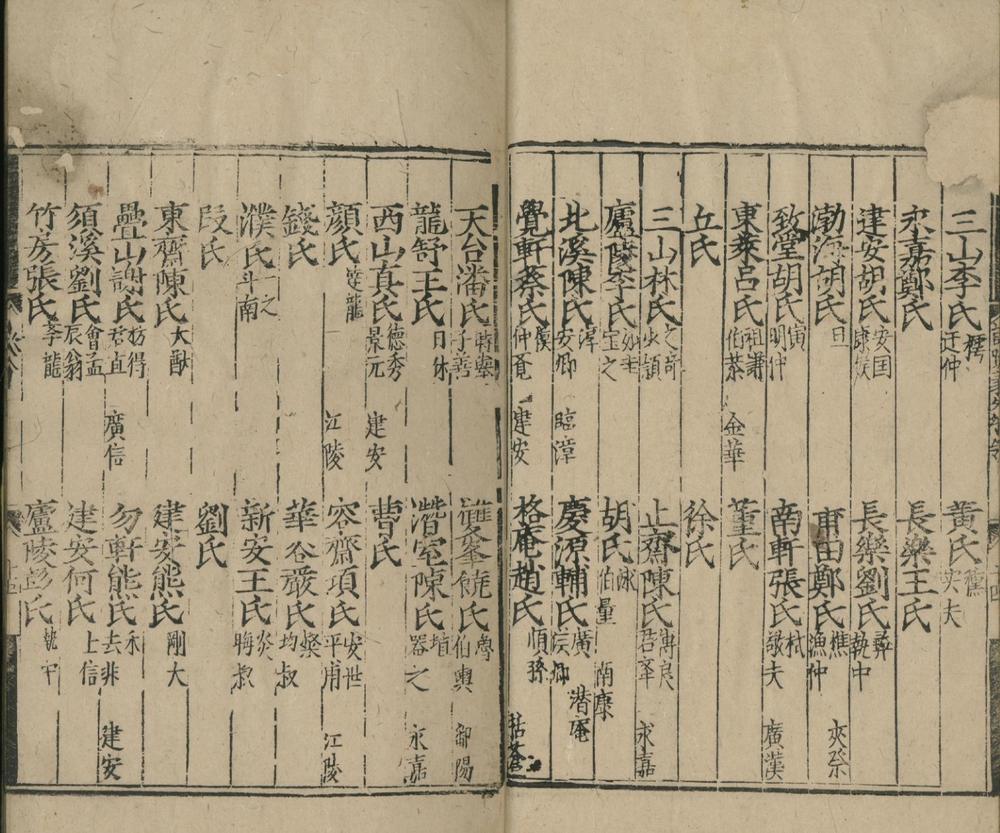 三山李氏 樗 迂仲 黃氏 夫
永嘉鄭氏 長樂王氏
建安胡氏 安国 康侯 長樂劉氏 彝 執中
渤海胡氏 旦 莆田鄭氏 樵 漁仲 夾漈
致堂胡氏 寅 明仲 南軒張氏 栻 敬夫 廣漢
東萊呂氏 祖謙 伯恭 金華 董氏
丘氏 徐氏
三山林氏 之奇 少穎 止齋陳氏 傅良 君舉 永嘉
廬陵李氏 如圭 宝之 胡氏 泳 伯量 南康
北溪陳氏 淳 安卿 臨漳 慶源輔氏 廣 漢卿 潜庵
覺軒蔡氏 模 仲覺 建安 格庵趙氏 順孫 括蒼
天台潘氏 時舉 子善 雙峯饒氏 魯 伯輿 鄱陽
龍舒王氏 日休 潛室陳氏 埴 器之 永嘉
西山真氏 德秀 景元 建安 曹氏
顏氏 達龍 江陵 容齋項氏 安世 平甫 江陵
錢氏 華谷嚴氏 粲 均叔
濮氏 一之 斗南 新安王氏 炎 晦叔
段氏 劉氏
東齋陳氏 大猷 建安熊氏 剛大
疊山謝氏 枋得 君直 廣信 勿軒熊氏 禾 去非 建安
須溪劉氏 會孟 辰翁 建安何氏 士信
竹房張氏 龍 廬陵彭氏 執中